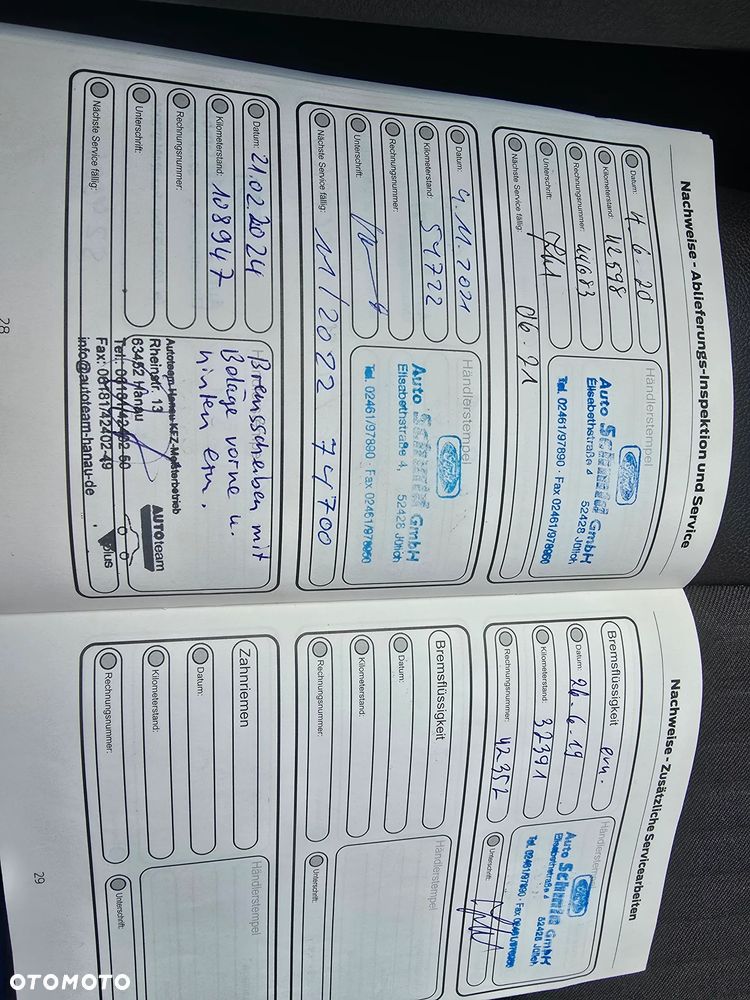 Nachweise - Ablieferungs-Inspektion und Service
Datum: 4.6.20
Kilometerstand: 42598
Rechnungsnummer: 44683
Unterschrift:
Nächste Service fällig: 06.21
Händlerstempel
Ford
Auto Schmid GmbH
Elisabethstraße 4 52428 Jülich
Tel. 02461/97890 · Fax 02461/978960
Datum: 4.11.2021
Kilometerstand: 54722
Rechnungsnummer:
Unterschrift:
Nächste Service fällig: 11/2022 74700
Händlerstempel
Ford
Auto Schmid GmbH
Elisabethstraße 4, 52428 Jülich
Tel. 02461/97890 · Fax 02461/978960
Datum: 21.02.2024
Kilometerstand: 108947
Rechnungsnummer:
Unterschrift:
Nächste Service fällig:
Bremsscheiben mit
Beläge vorne u.
hinten ern.
Autoteam Hanau KFZ-Meisterbetrieb
Rheinstr. 13
63452 Hanau
Fax: 06181/42402-49
info@autoteam-hanau-de
AUTOteam
plus
28
Nachweise - Zusätzliche Servicearbeiten
Bremsflüssigkeit ern.
Datum: 26.6.19
Kilometerstand: 32391
Rechnungsnummer: 42352
Händlerstempel
Ford
Auto Schmid GmbH
Elisabethstraße 4 52428 Jülich
Tel. 02461/97890 · Fax 02461/978960
Unterschrift:
Bremsflüssigkeit
Datum:
Kilometerstand:
Rechnungsnummer:
Händlerstempel
Unterschrift:
Zahnriemen
Datum:
Kilometerstand:
Rechnungsnummer:
Händlerstempel
Unterschrift:
29
OTOMOTO